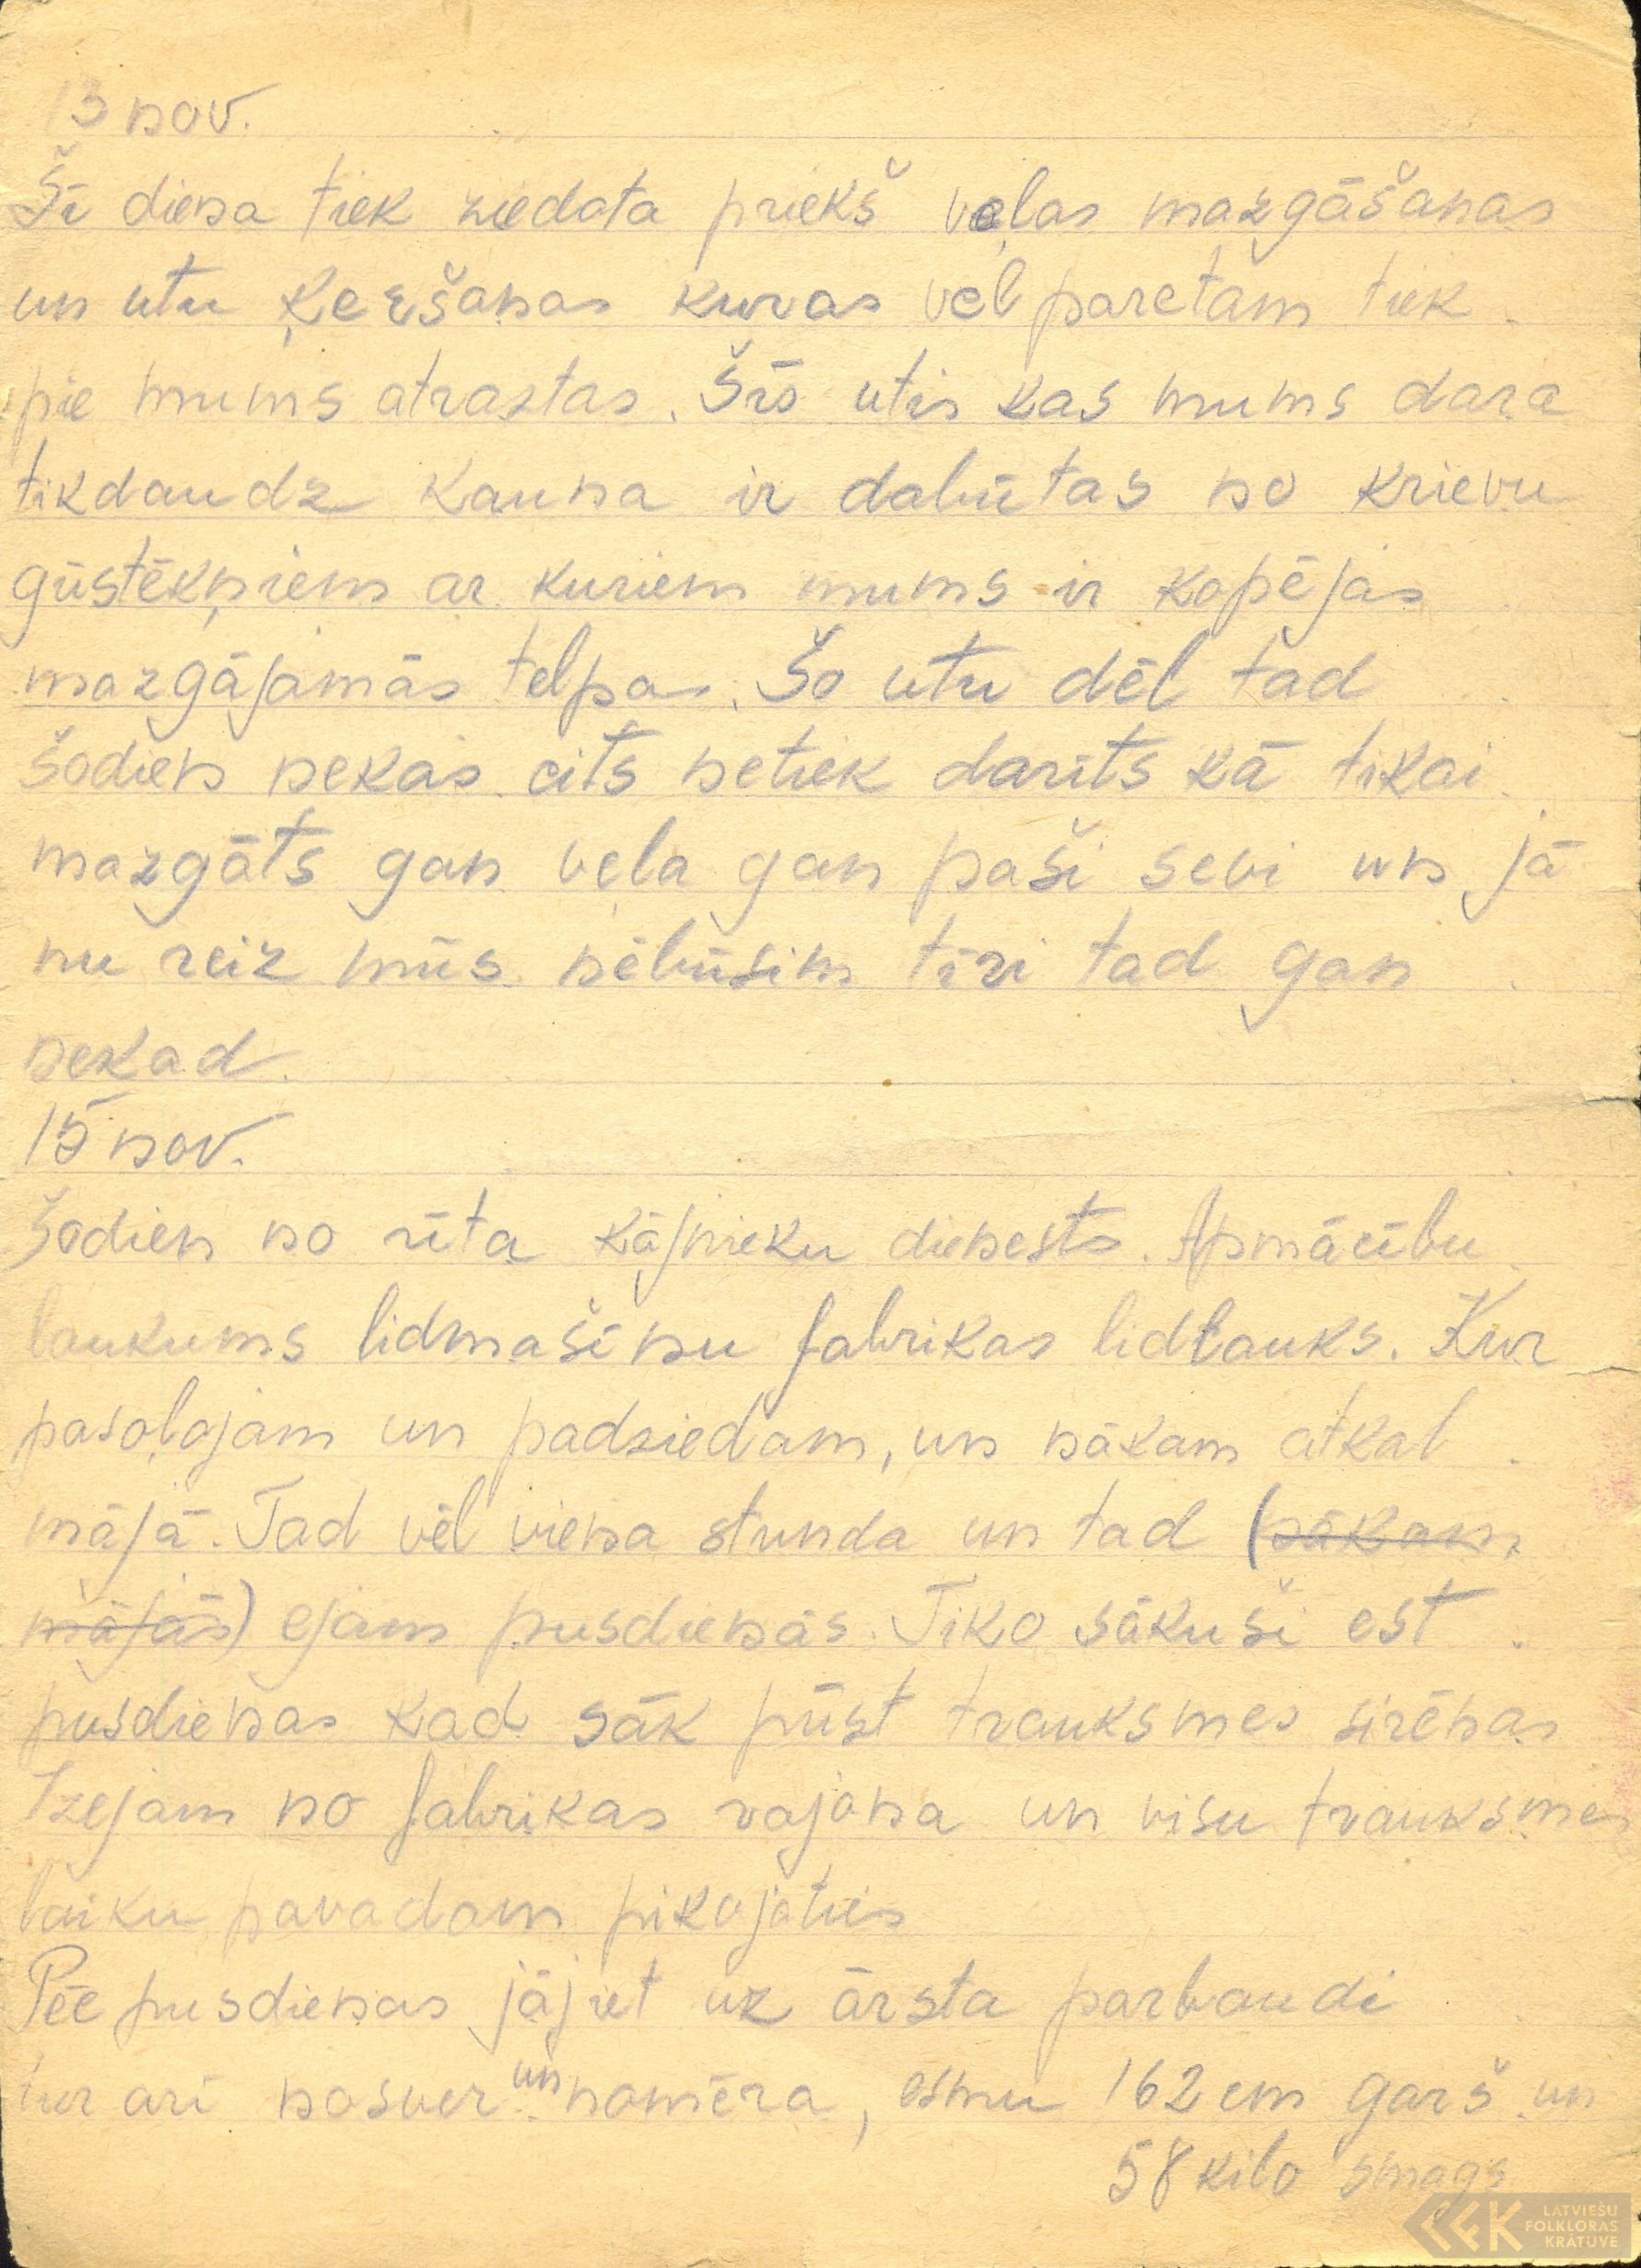 13 nov.
Šī diena tiek ziedota priekš veļas mazgāšanas
un utu ķeršanas kuras vel paretam tiek
pie mums atrastas. Šīs utis kas mums dara
tikdaudz kauna ir dabūtas no krievu
gūstēkņiem ar kuriem mums ir kopējas
mazgājamās telpas. Šo utu dēl tad
šodien nekas cits netiek darīts kā tikai
mazgāts gan veļa gan paši sevi un jā
nu reiz mūs nēbūsim tīri tad gan
nekad.
15 nov.
Šodien no rīta kājnieku dienests. Apmācību
laukums lidmašīnu fabrikas lidlauks. Kur
pasoļojam un padziedam, un nākam atkal
mājā. Tad vēl viena stunda un tad (nākam
mājās) ejam pusdienās. Tiko sākuši est
pusdienas kad sāk pūst trauksmes sirēnas
Izejam no fabrikas rajona un visu trauksmes
laiku pavadam pikojoties
Pēc pusdienas jājiet uz ārsta parbaudi
tur arī nosver un nomēra, esmu 162 cm garš un
58 kilo smags
LATVIEŠU
FOLKLORAS
KRĀTUVE